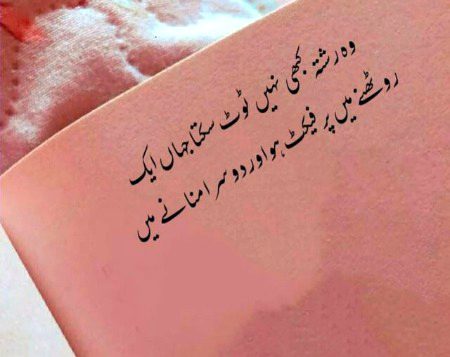 وہ رشتہ کبھی نہیں ٹوٹ سکتا جہاں ایک
روٹھنے میں پرفیکٹ ہو اور دوسرا منانے میں